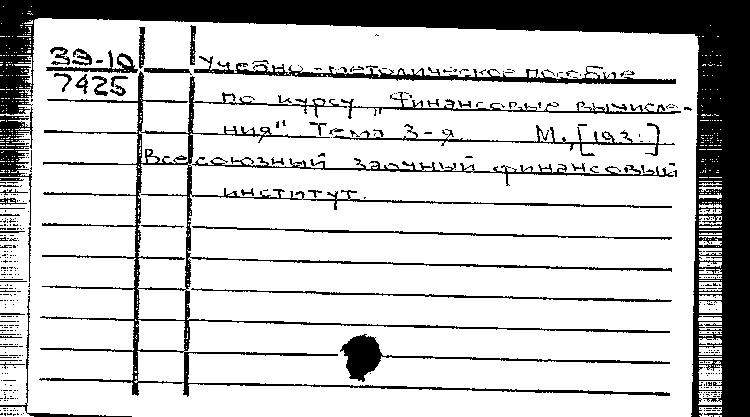 39-10
7425
Учебно-методическое пособие
по курсу „Финансовые вычисле-
ния" Тема 3-я М.,
Всесоюзный заочный финансовый
институт.